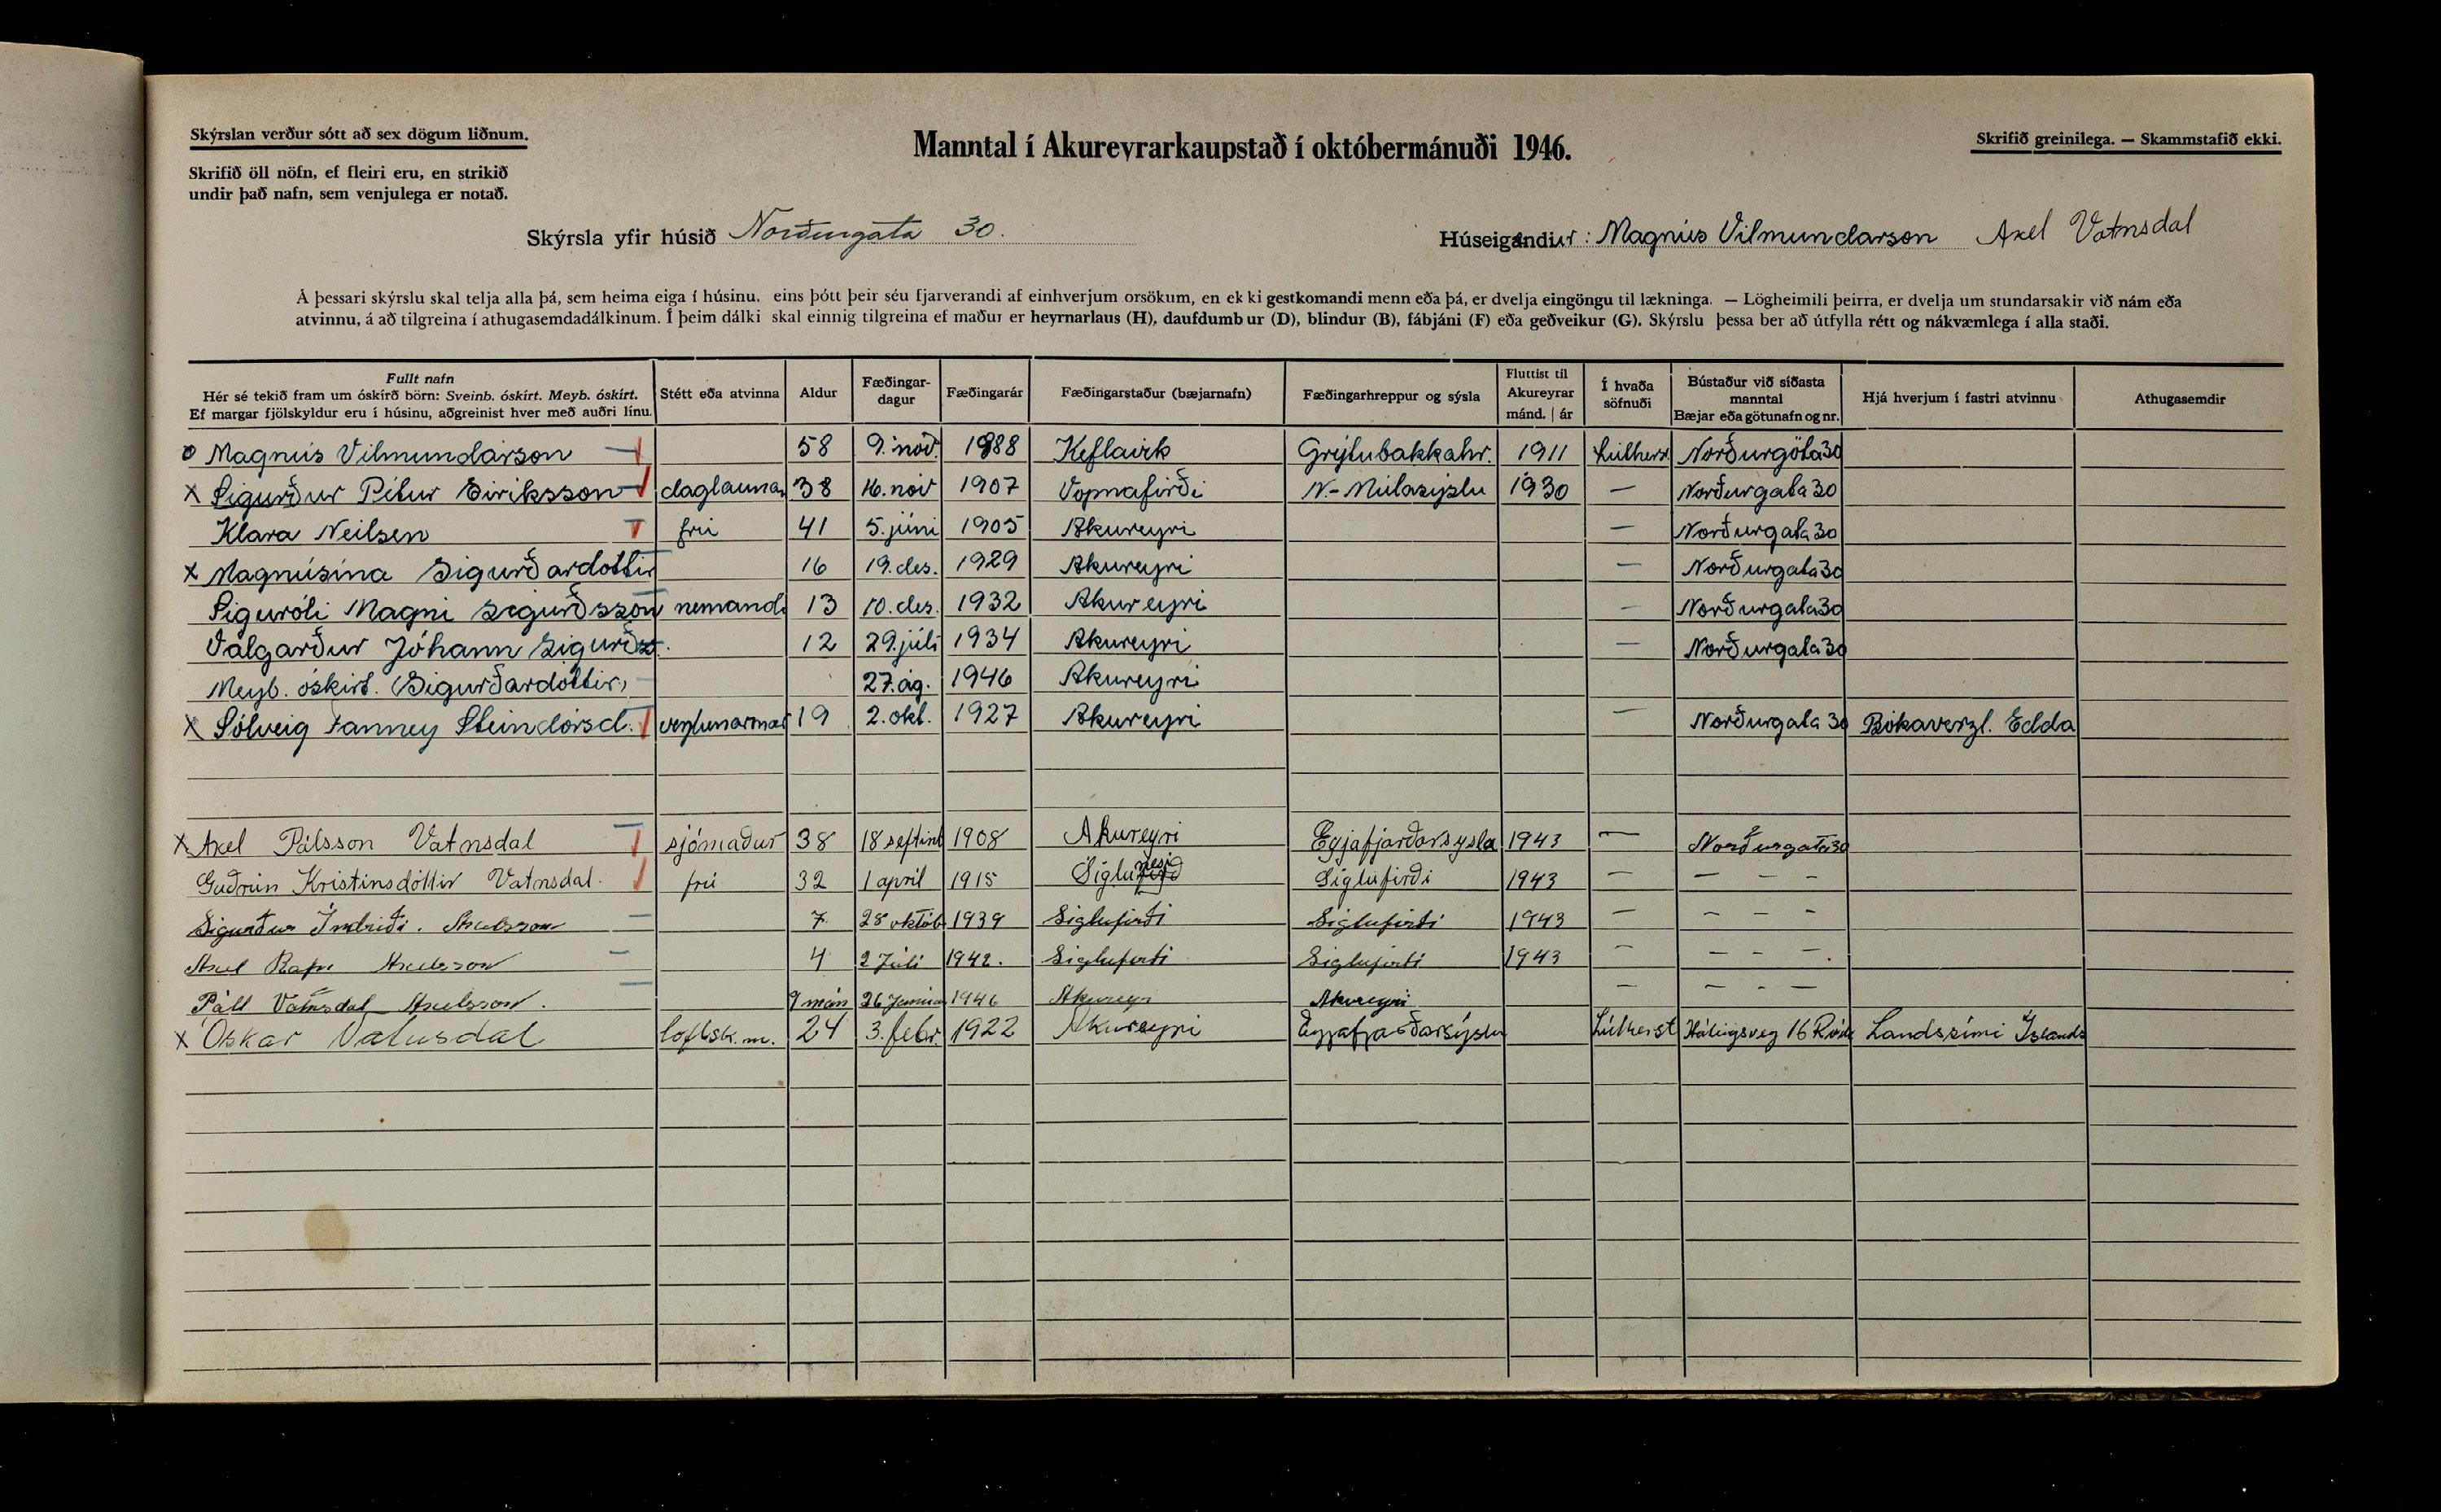 Skýrslan verður sótt að sex dögum liðnum.
Manntal í Akureyrarkaupstað í októbermánuði 1946.
Skrifið greinilega. — Skammstafið ekki.
Skrifið öll nöfn, ef fleiri eru, en strikið
undir það nafn, sem venjulega er notað.
Skýrsla yfir húsið Norðurgata 30.
Húseigendur: Magnús Vilmundarson Axel Vatnsdal
Á þessari skýrslu skal telja alla þá, sem heima eiga í húsinu, eins þótt þeir séu fjarverandi af einhverjum orsökum, en ekki gestkomandi menn eða þá, er dvelja eingöngu til lækninga. — Lögheimili þeirra, er dvelja um stundarsakir við nám eða
atvinnu, á að tilgreina í athugasemdadálkinum. Í þeim dálki skal einnig tilgreina ef maður er heyrnarlaus (H), daufdumbur (D), blindur (B), fábjáni (F) eða geðveikur (G). Skýrslu þessa ber að útfylla rétt og nákvæmlega í alla staði.
Fullt nafn Hér sé tekið fram um óskírð börn: Sveinb. óskírt. Meyb. óskírt. Ef margar fjölskyldur eru í húsinu, aðgreinist hver með auðri línu. Stétt eða atvinna Aldur Fæðingar-dagur Fæðingarár Fæðingarstaður (bæjarnafn) Fæðingarhreppur og sýsla Fluttist til Akureyrar mánd. | ár Í hvaða söfnuði Bústaður við síðasta manntal Bæjar eða götunafn og nr. Hjá hverjum í fastri atvinnu Athugasemdir
o Magnús Vilmundarson 58 9. nóv. 1888 Keflavík Grýtubakkahr. 1911 Lúthers. Norðurgöta 30
x Sigurður Pétur Eiríksson daglauna 38 16. nóv 1907 Vopnafirði N.-Múlasýslu 1930 — Norðurgata 30
Klara Neilsen frú 41 5. júní 1905 Akureyri — Norðurgata 30
x Magnúsína Sigurðardóttir 16 19. des. 1929 Akureyri — Norðurgata 30
Siguróli Magni Sigurðsson nemandi 13 10. des. 1932 Akureyri — Norðurgata 30
Valgarður Jóhann Sigurðs. 12 29. júlí 1934 Akureyri — Norðurgata 30
Meyb. óskírt. (Sigurðardóttir) 27. ág. 1946 Akureyri
x Sólveig Fanney Steindórsd. 19 2. okt. 1927 Akureyri — Norðurgata 30 Bókaverzl. Edda
x Axel Pálsson Vatnsdal sjómaður 38 18 septemb 1908 Akureyri Eyjafjarðarsysla 1943 — Norðurgata 30
Guðrún Kristinsdóttir Vatnsdal. frú 32 1 apríl 1915 Siglunesi Siglufirði 1943 — — — —
Sigurður Indriði. Axelsson 7 28 októb 1939 Siglufirði Siglufirði 1943 — — — —
Axel Rafn Axelsson 4 2 Júlí 1942. Siglufirði Siglufirði 1943 — — — —
Páll Vatnsdal Axelsson. 9 mán 26 Janúar 1946 Akureyri Akureyri — — — —
x Óskar Vatnsdal loftsk.m. 24 3. febr. 1922 Akureyri Eyjafjarðarsýslu Lútherst 16 Landssími Íslands